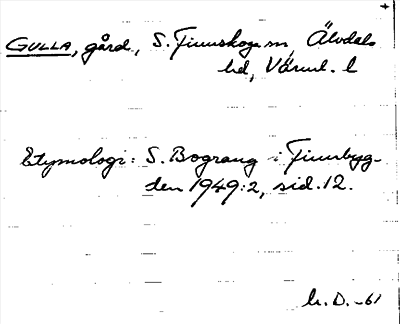 GULLA, gård, S. Finnskoga sn, Älvdals
hd, Värml. l
Etymologi: S. Bograng i Finnbyg-
den 1949:2, sid. 12.
D. -61